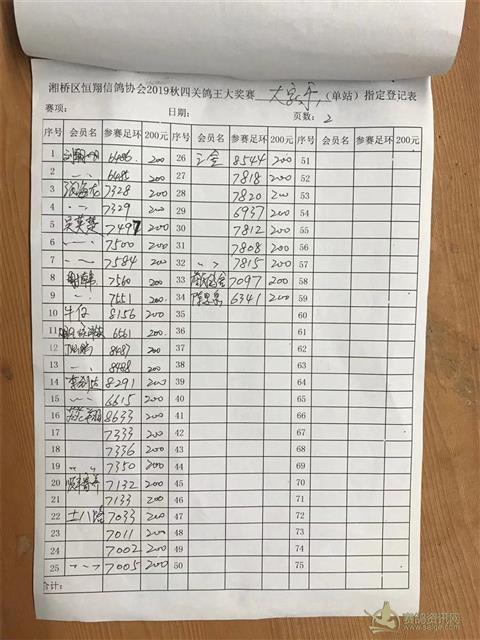 湘桥区恒翔信鸽协会2019秋四关鸽王大奖赛 (单站)指定登记表
赛项: 日期: 页数: 2
序号 会员名 参赛足环 200元 序号 会员名 参赛足环 200元 序号 会员名 参赛足环 200元
1 6486 200 26 8544 200 51
2 6485 200 27 7818 200 52
3 7328 200 28 7820 200 53
4 7329 200 29 6937 200 54
5 吴英楚 7497 200 30 7812 200 55
6 7500 200 31 7808 200 56
7 7584 200 32 7815 200 57
8 7560 200 33 7097 200 58
9 7551 200 34 陈思泉 6341 200 59
10 牛仔 8156 200 35 60
11 6561 200 36 61
12 8487 200 37 62
13 8488 200 38 63
14 8291 200 39 64
15 6615 200 40 65
16 8633 200 41 66
17 7333 200 42 67
18 7336 200 43 68
19 7350 200 44 69
20 7132 200 45 70
21 7133 200 46 71
22 士八隆 7033 200 47 72
23 7011 200 48 73
24 7002 200 49 74
25 7005 200 50 75
合计:
赛鸽资讯网
www.saige.com